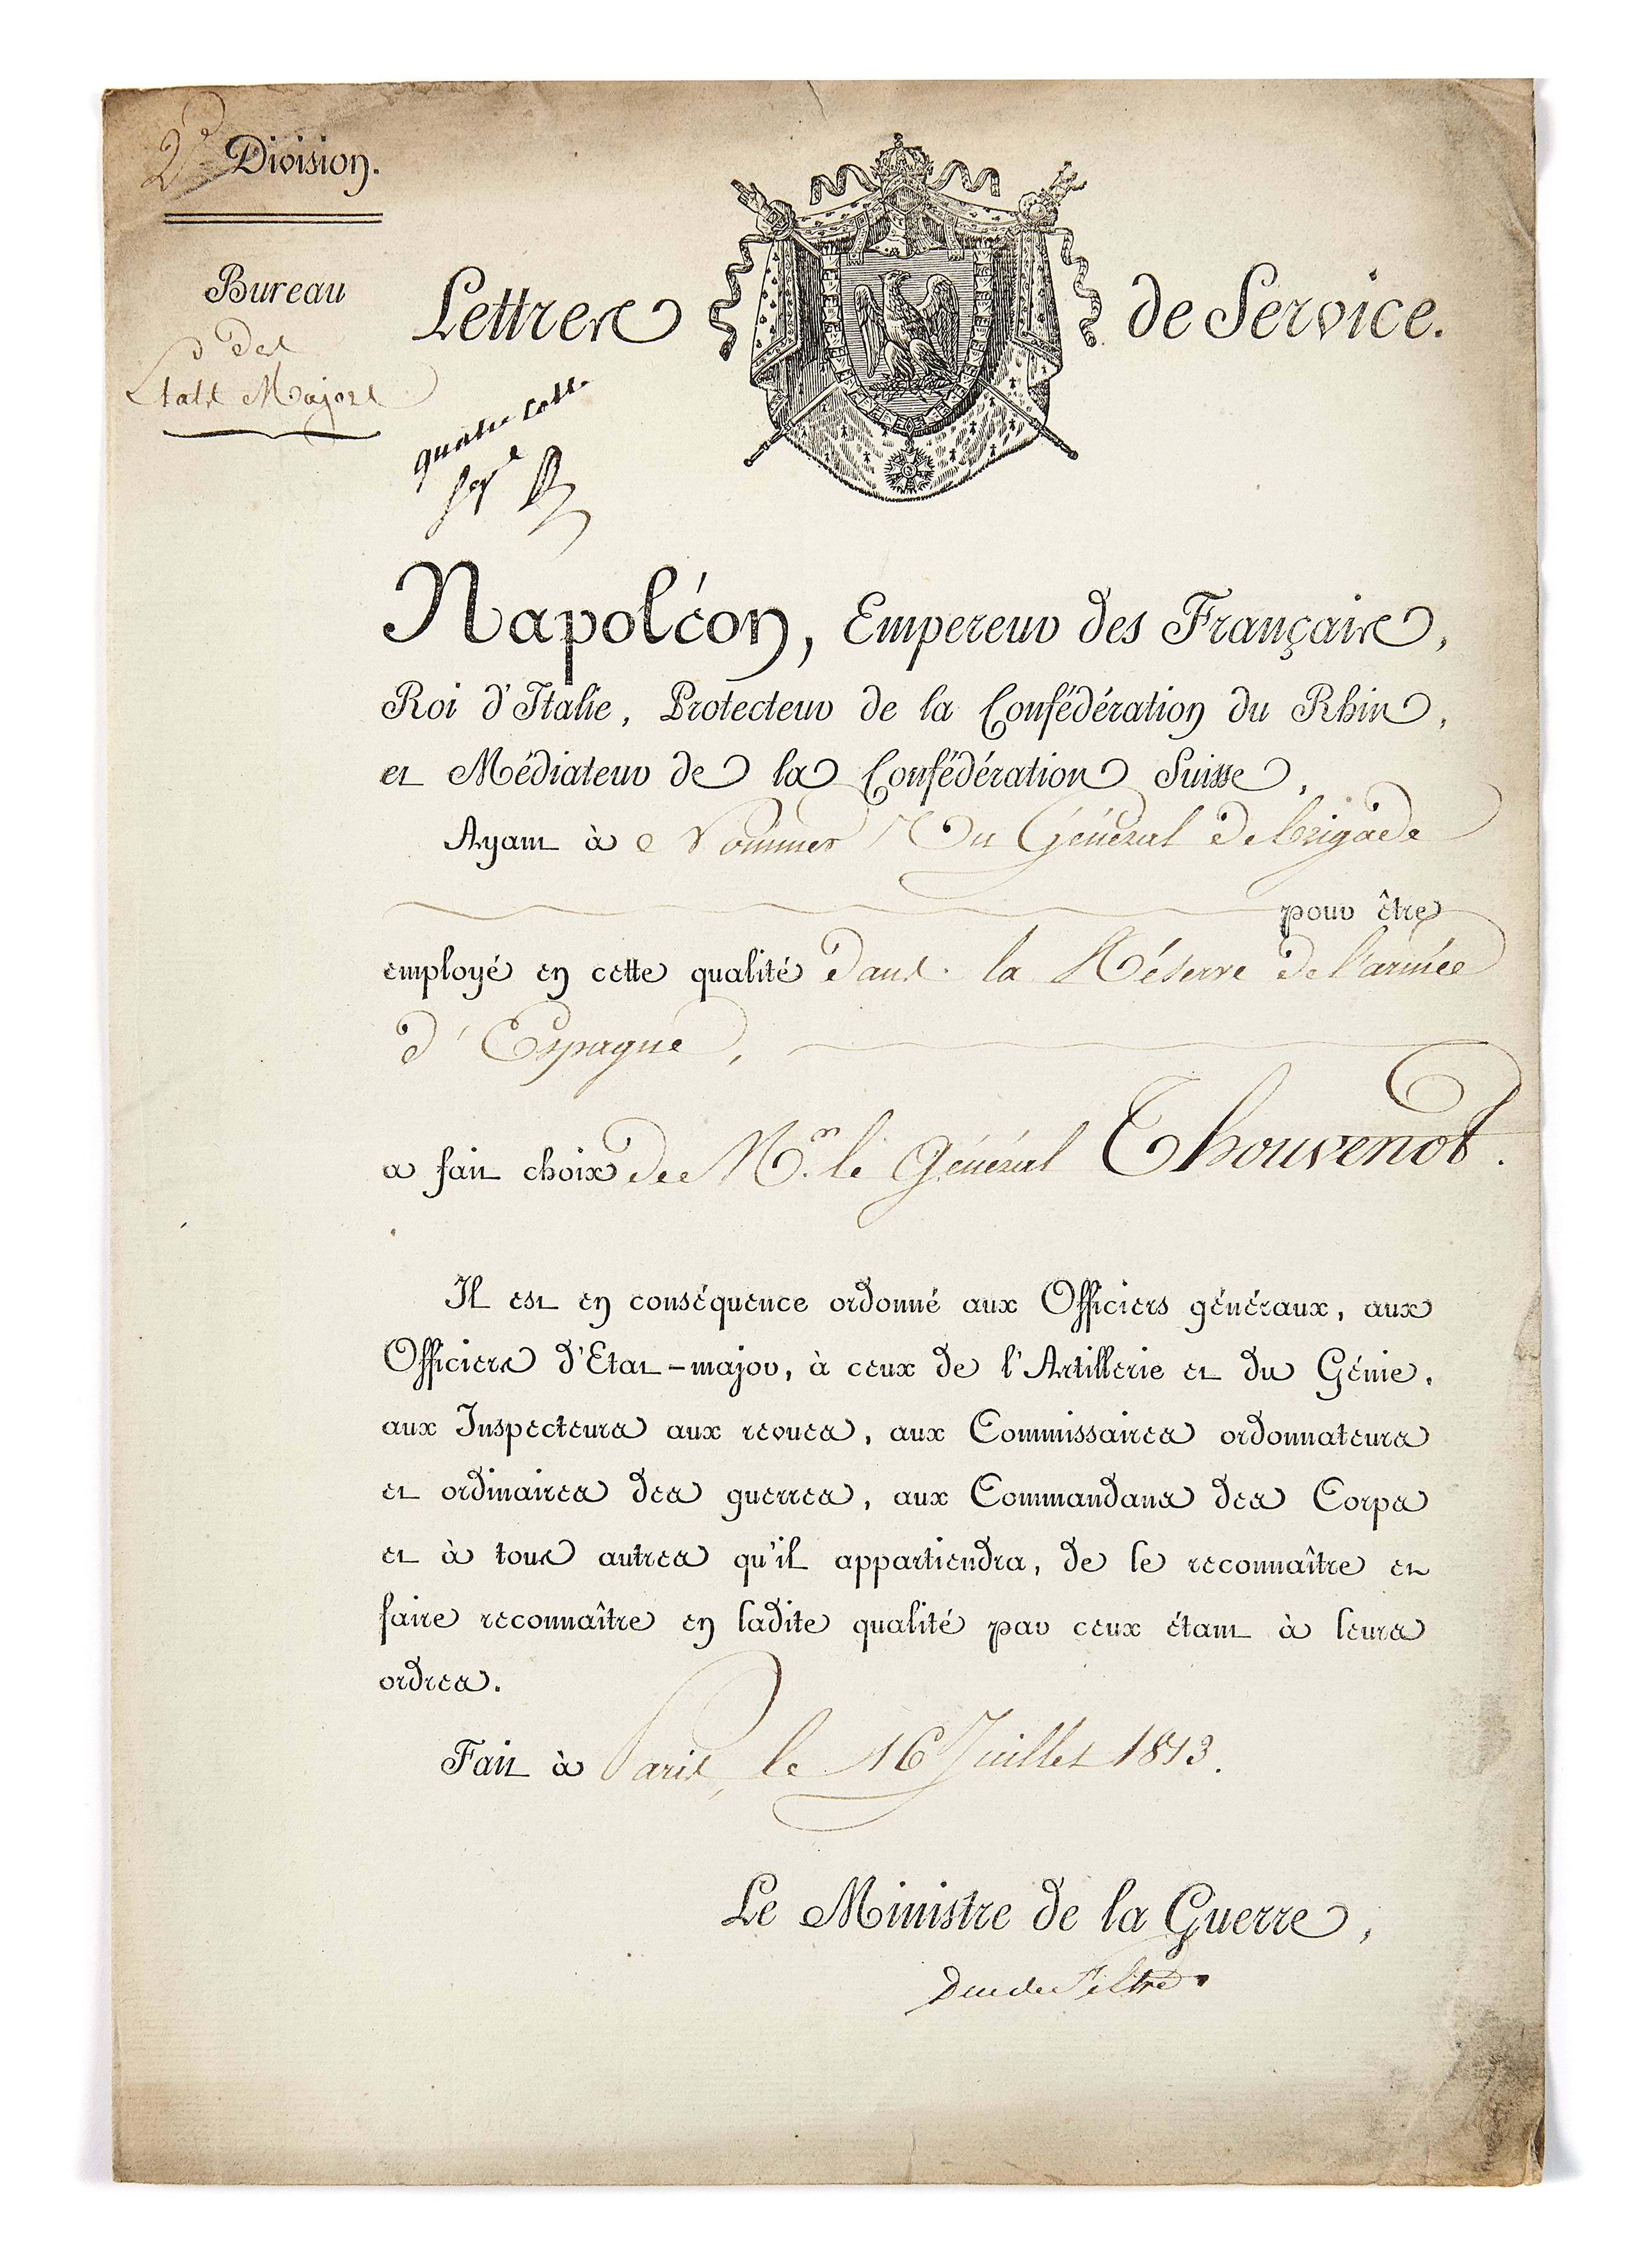 2e Division.
Bureau
des
Etats Majors
Lettres de Service.
Napoléon, Empereur des Français,
Roi d'Italie, Protecteur de la Confédération du Rhin,
et Médiateur de la Confédération Suisse,
Ayant à Nommer Un Général de brigade
pour être
employé en cette qualité dans la Réserve de l'armée
d'Espagne,
a fait choix de Mon. le Général Thouvenot.
Il est en conséquence ordonné aux Officiers généraux, aux
Officiers d'Etat-major, à ceux de l'Artillerie et du Génie,
aux Inspecteurs aux revues, aux Commissaires ordonnateurs
et ordinaires des guerres, aux Commandans des Corps
et à tous autres qu'il appartiendra, de le reconnaître et
faire reconnaître en ladite qualité par ceux étant à leurs
ordres.
Fait à Paris, le 16 Juillet 1813.
Le Ministre de la Guerre,
Duc de Feltre